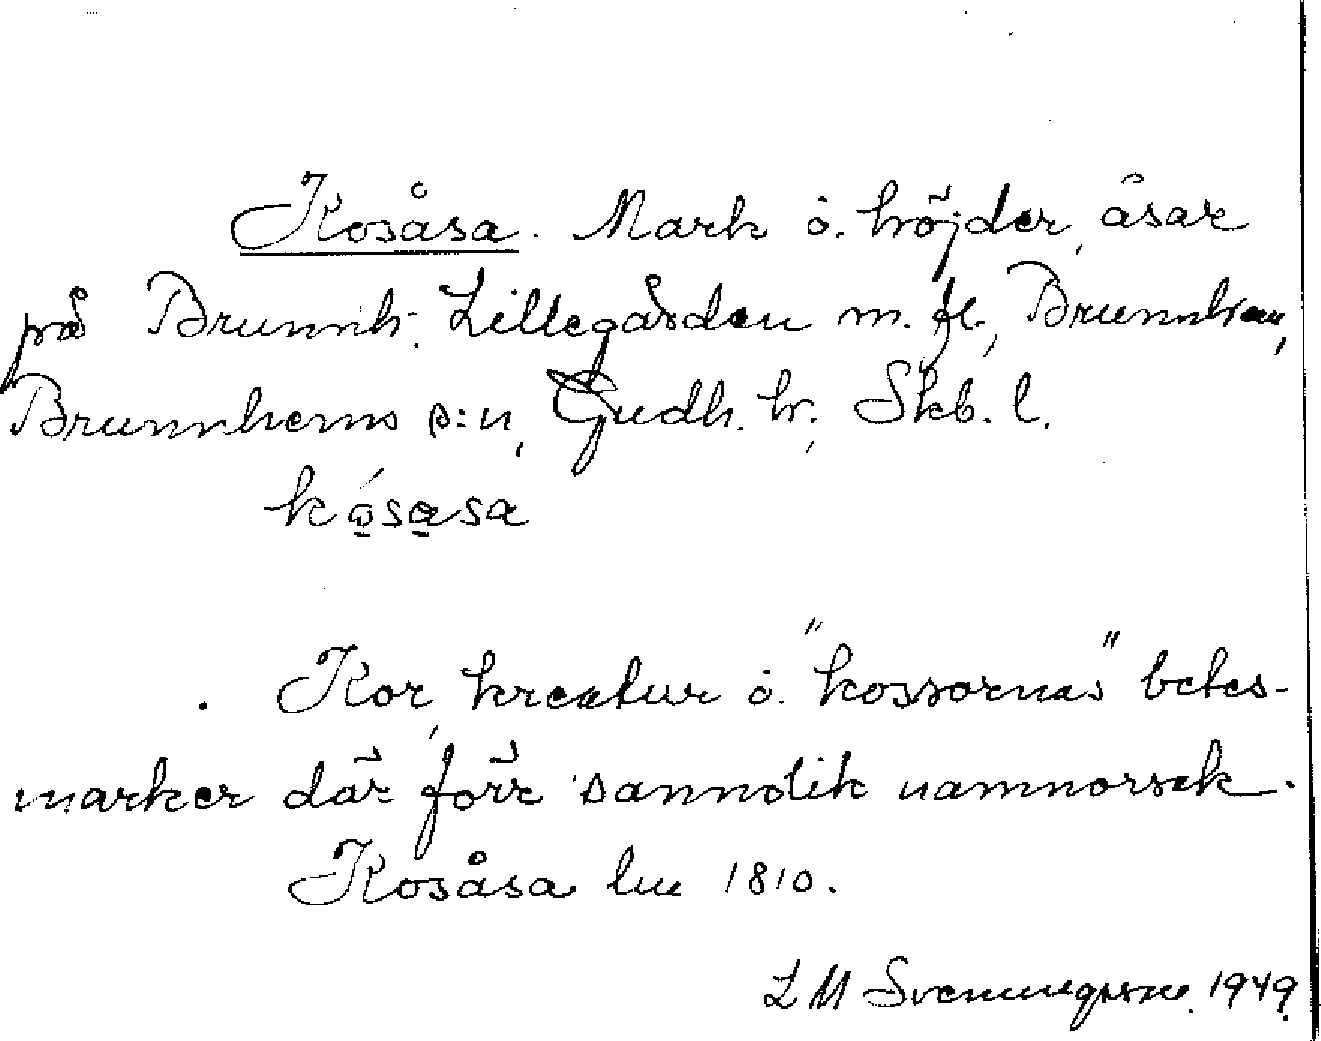 Kosåsa. Mark o. höjder, åsar
på Brunnh. Lillegården m. fl., Brunnhem,
Brunnhems s:n, Gudh. hr., Skb. l.
kósasa
Kor, kreatur o. "kossornas" betes-
marker där förr sannolik namnorsak.
Kosåsa lm 1810.
L M Svenungsson. 1949.